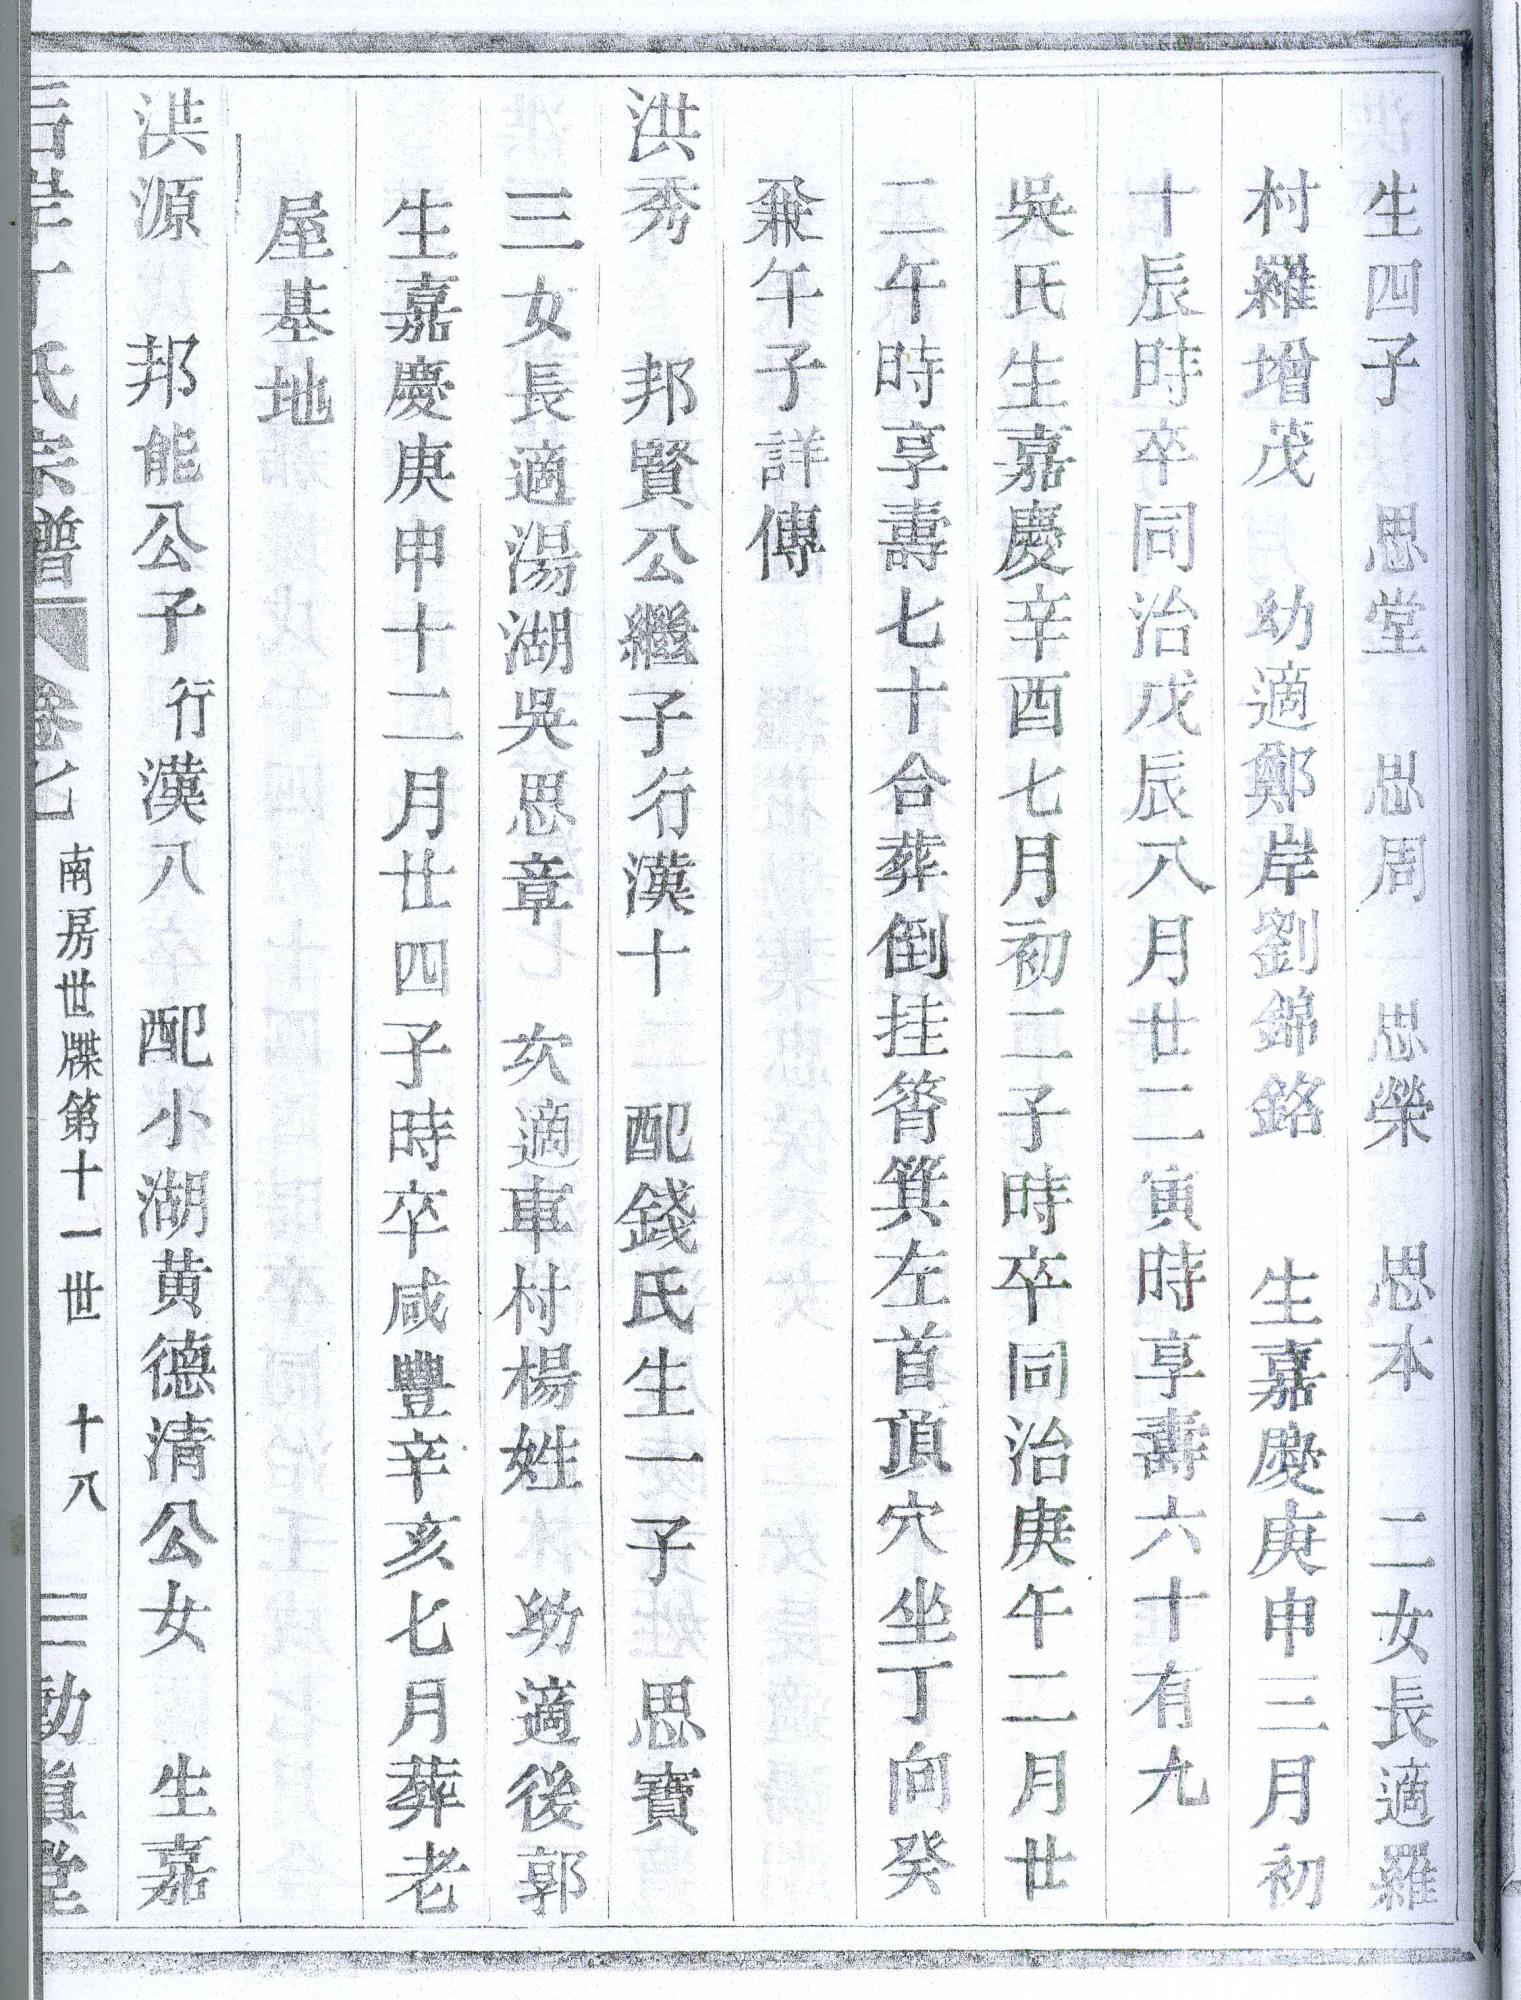 生四子 思堂 思周 思榮 思本 二女長適羅
村羅增茂 幼適鄭岸劉錦銘 生嘉慶庚申三月初
十辰時卒同治戊辰八月廿二寅時享壽六十有九
吳氏生嘉慶辛酉七月初二子時卒同治庚午二月廿
二午時享壽七十合葬倒挂筲箕左首頂穴坐丁向癸
兼午子詳傳
洪秀 邦賢公繼子行漢十二 配錢氏生一子 思寶
三女長適湯湖吳思章 次適車村楊姓 幼適後郭
生嘉慶庚申十二月廿四子時卒咸豐辛亥七月葬老
屋基地
洪源 邦能公子行漢八 配小湖黃德清公女 生嘉
氏宗譜 卷七 南房世牒第十一世 十八 三 堂